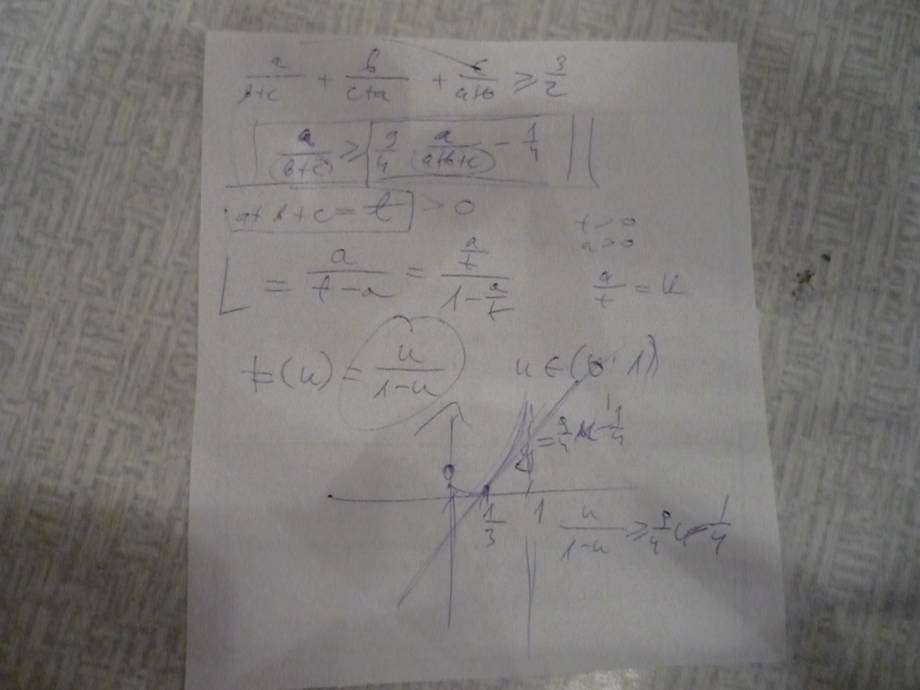 a/(b+c) + b/(c+a) + c/(a+b) ≥ 3/2
a/(b+c) ≥ 9/4 a/(a+b+c) - 1/4
a+b+c = t > 0
t>0
a>0
L = a/(t-a) = (a/t)/(1-a/t)
a/t = u
f(u) = u/(1-u)
u ∈ (0; 1)
y = 9/4 u - 1/4
1/3
1
u/(1-u) ≥ 9/4 u - 1/4